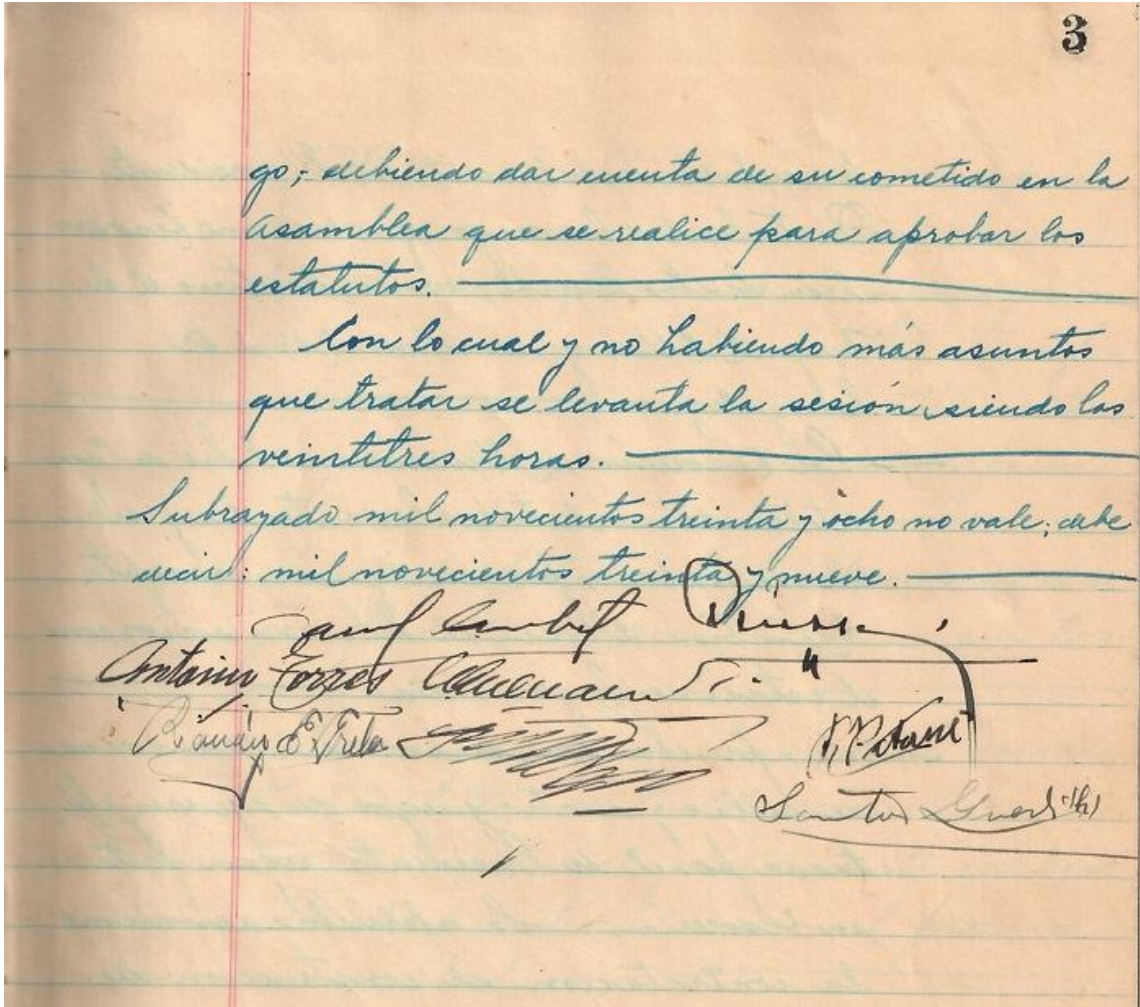 3
go; debiendo dar cuenta de su cometido en la
asamblea que se realice para aprobar los
estatutos.
Con lo cual y no habiendo más asuntos
que tratar se levanta la sesión siendo las
veintitres horas.
Subrayado mil novecientos treinta y ocho no vale; debe
decir: mil novecientos treinta y nueve.
Antonio Torres
Santos